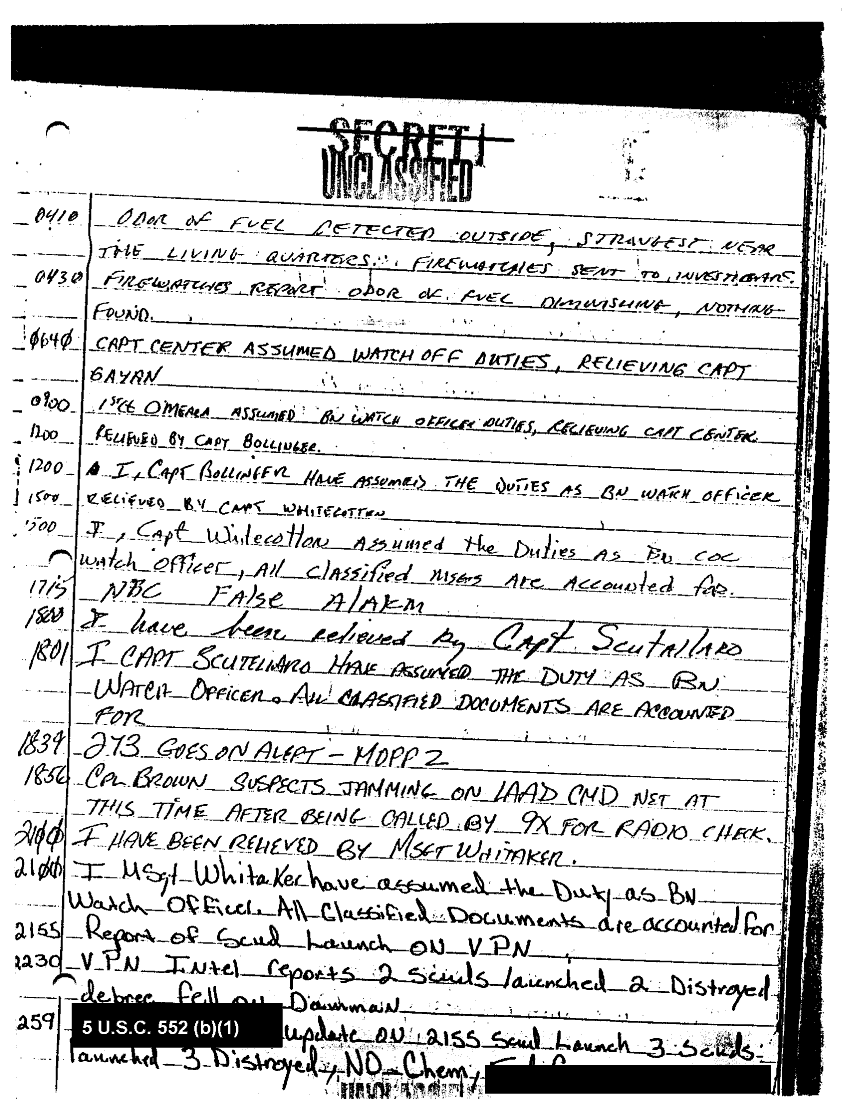 SECRET
UNCLASSIFIED
0410 ODOR OF FUEL DETECTED OUTSIDE, STRONGEST NEAR
THE LIVING QUARTERS. FIREWATCHES SENT TO INVESTIGATE.
0430 FIREWATCHES REPORT ODOR OF FUEL DIMINISHING, NOTHING
FOUND.
0640 CAPT CENTER ASSUMED WATCH OFF DUTIES, RELIEVING CAPT
GAYAN
0900 1STLT O'MEARA ASSUMED BN WATCH OFFICER DUTIES, RELIEVING CAPT CENTER.
1200 RELIEVED BY CAPT BOLLINGER.
1200 I, CAPT BOLLINGER HAVE ASSUMED THE DUTIES AS BN WATCH OFFICER
1500 RELIEVED BY CAPT WHITECOTTON
1500 I, Capt Whitecotton Assumed the Duties As Bn COC
watch officer, All classified msgs Are Accounted for.
1715 NBC False AlARM
1800 I have been relieved by Capt Scutallaro
1801 I CAPT SCUTELLARO HAVE ASSUMED THE DUTY AS BN
WATCH OFFICER. All CLASSIFIED DOCUMENTS ARE ACCOUNTED
FOR
1839 273 GOES ON ALERT - MOPP 2
1856 CPL BROWN SUSPECTS JAMMING ON LAAD CMD NET AT
THIS TIME AFTER BEING CALLED BY 9X FOR RADIO CHECK.
2100 I HAVE BEEN RELIEVED BY MSGT WHITAKER.
2100 I MSgt Whitaker have assumed the Duty as BN
Watch Officer. All Classified Documents are accounted for
2155 Report of Scud Launch ON VPN
2230 VPN Intel reports 2 Scuds launched 2 Distroyed
debree fell on Dammain
259 5 U.S.C. 552 (b)(1) update ON 2155 Scud Launch 3 Scuds
launched 3 Distroyed, NO Chem,
UNCLASSIFIED